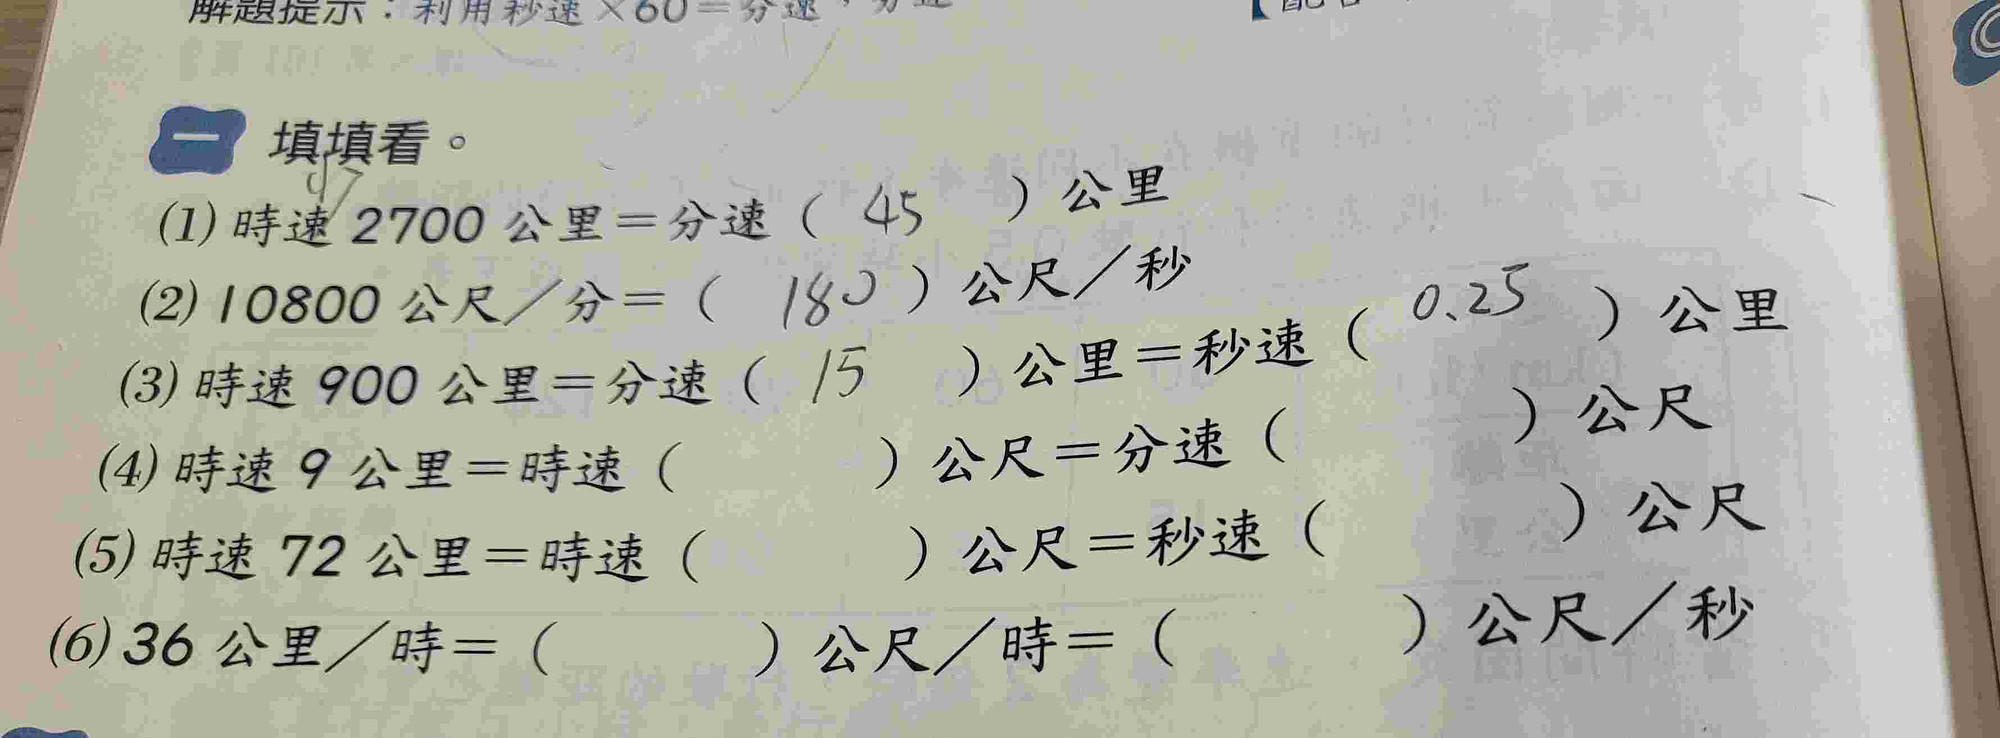 解題提示：利用秒速×60＝分速，分速
一 填填看。
(1) 時速 2700 公里＝分速（ 45 ）公里
(2) 10800 公尺／分＝（ 180 ）公尺／秒
(3) 時速 900 公里＝分速（ 15 ）公里＝秒速（ 0.25 ）公里
(4) 時速 9 公里＝時速（ ）公尺＝分速（ ）公尺
(5) 時速 72 公里＝時速（ ）公尺＝秒速（ ）公尺
(6) 36 公里／時＝（ ）公尺／時＝（ ）公尺／秒